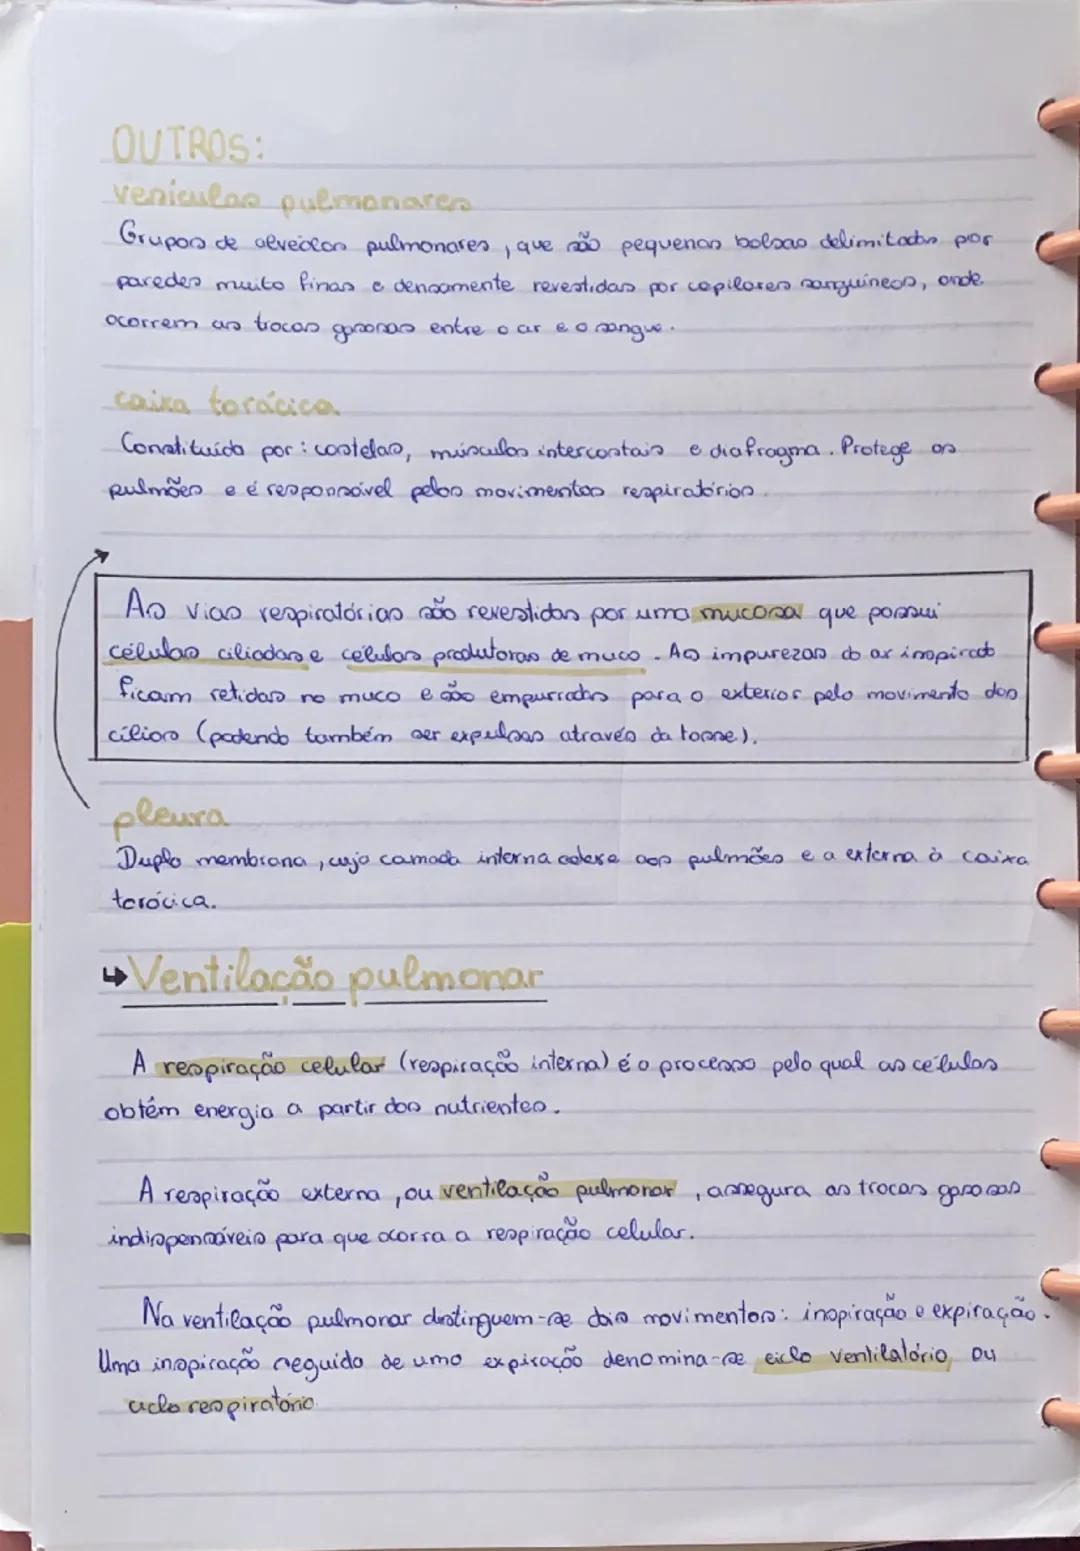 OUTROS:
vesículas pulmonares
Grupos de alvéolos pulmonares, que são pequenas bolsas delimitadas por
paredes muito finas e densamente revestidas por capilares sanguíneos, onde
ocorrem as trocas gasosas entre o ar e o sangue.
caixa torácica
Constituída por: costelas, músculos intercostais e diafragma. Protege os
pulmões e é responsável pelos movimentos respiratórios.
As vias respiratórias são revestidas por uma mucosa que possui
células ciliadas e células produtoras de muco. As impurezas do ar inspirado
ficam retidas no muco e são empurradas para o exterior pelo movimento dos
cílios (podendo também ser expulsas através da tosse).
pleura
Dupla membrana, cuja camada interna adere aos pulmões e a externa à caixa
torácica.
↳ Ventilação pulmonar
A respiração celular (respiração interna) é o processo pelo qual as células
obtêm energia a partir dos nutrientes.
A respiração externa, ou ventilação pulmonar, assegura as trocas gasosas
indispensáveis para que ocorra a respiração celular.
Na ventilação pulmonar distinguem-se dois movimentos: inspiração e expiração.
Uma inspiração seguida de uma expiração denomina-se ciclo ventilatório, ou
ciclo respiratório.